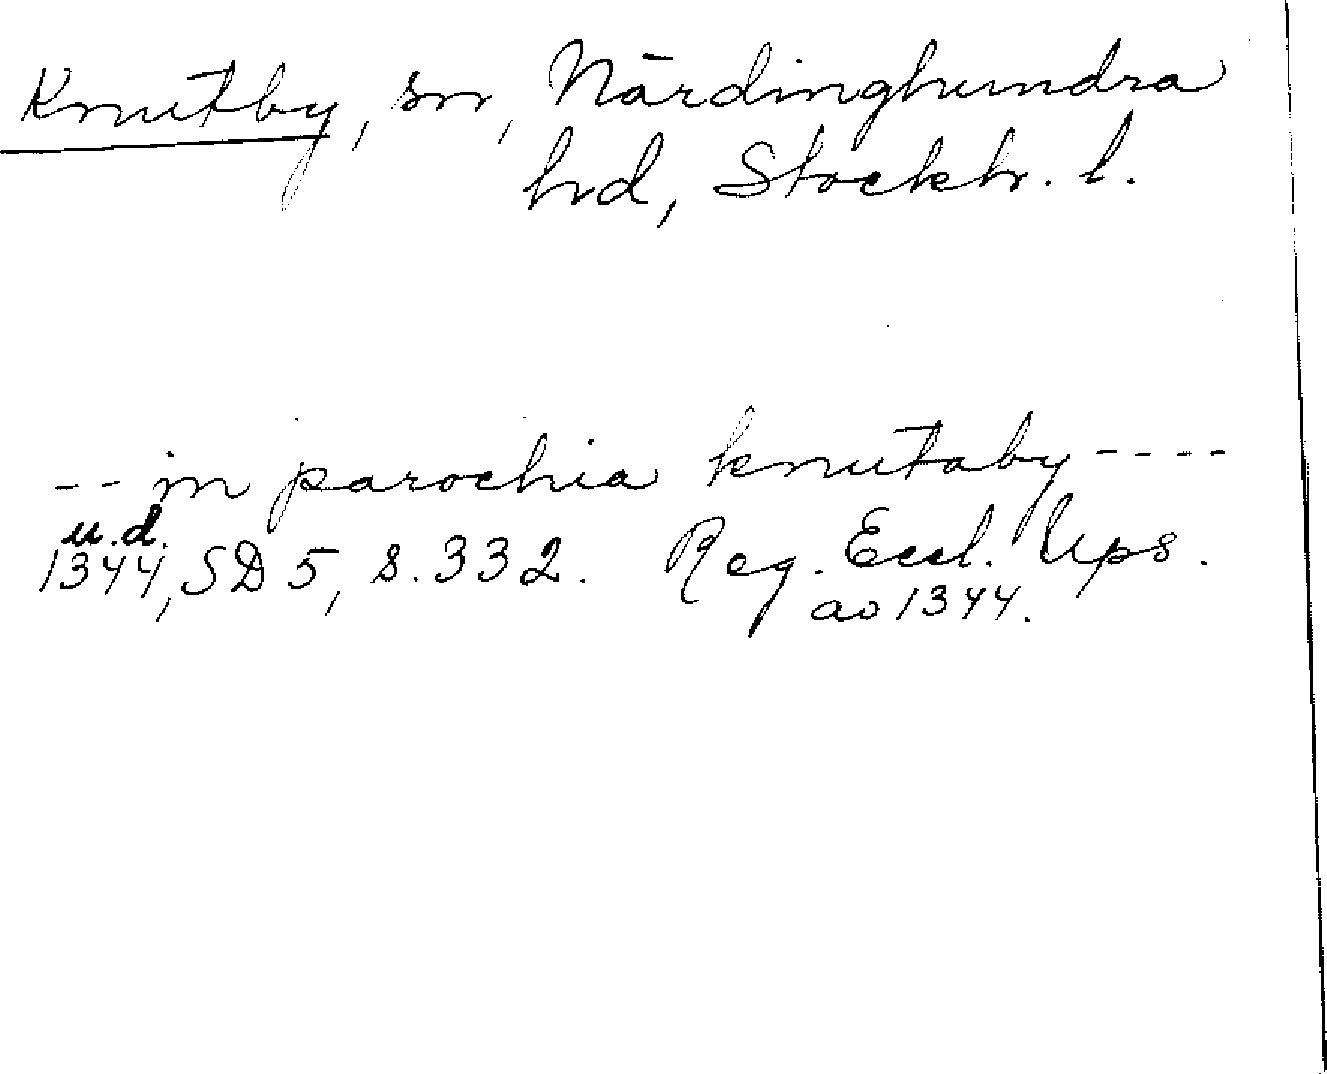 Knutby, sn, Närdinghundra
hd, Stockh. l.
-- in parochia knutaby ----
u.d.
1344, SD 5, s. 332. Reg. Eccl. Ups.
ao 1344.